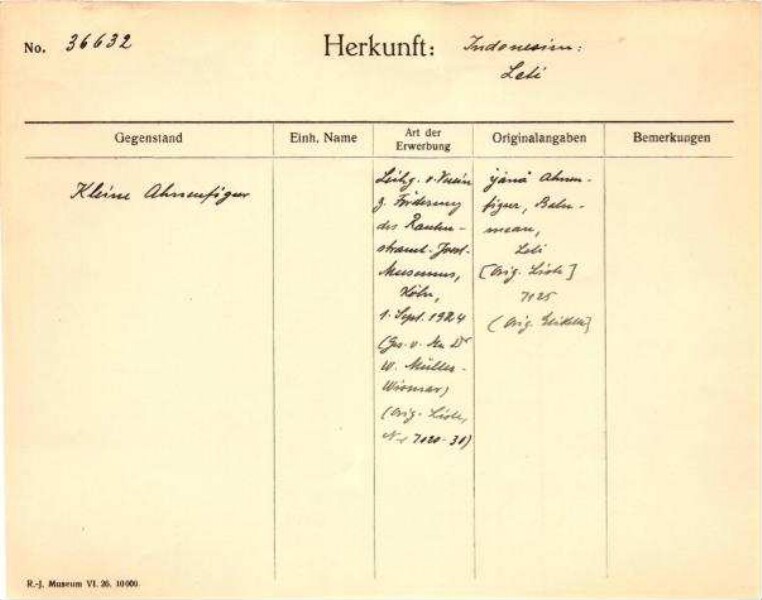 No. 36632
Herkunft: Indonesien:
Leti
Gegenstand
Einh. Name
Art der
Erwerbung
Originalangaben
Bemerkungen
Kleine Ahnenfigur
Leihg. v. Verein
z. Förderung
des Rauten-
strauch-Joest-
Museums,
Köln,
1. Sept. 1924
(Ges. v. Dr
W. Müller-
Wismar)
(Orig. Liste,
Nr 7020-30)
Ahnen-
figur,
Leti
[Orig. Liste]
7025
(Orig. Etikett]
R.-J. Museum VI. 26. 10000.